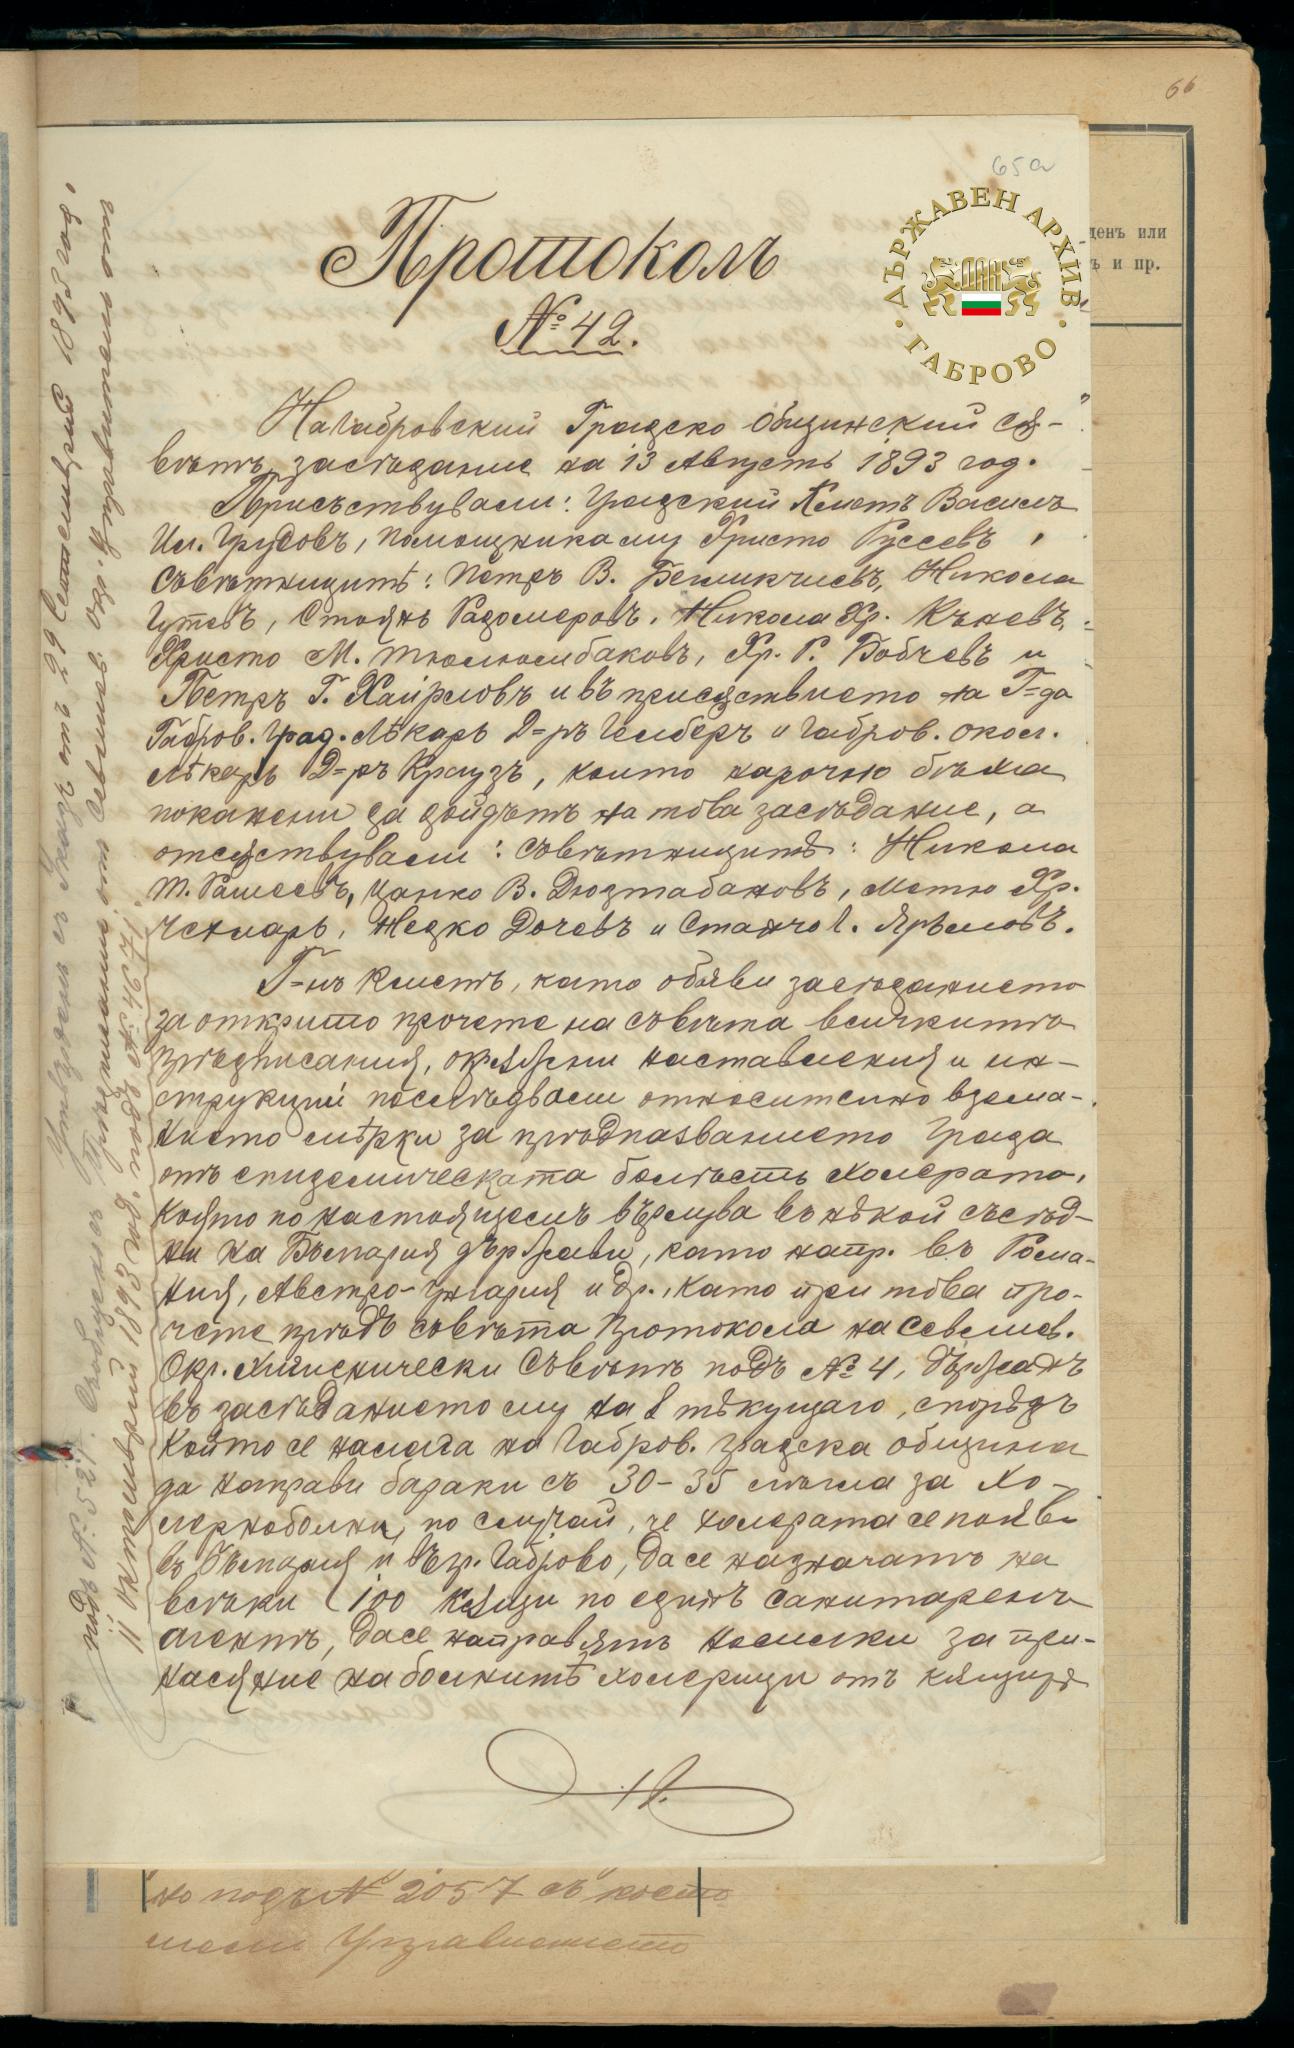 66
65а
ДЪРЖАВЕН АРХИВ
ДААН
ГАБРОВО
денъ или
ъ и пр.
Протоколъ
№ 42.
На Габровский Градско Общинский Съ-
вѣтъ, засѣдание на 13 Августъ 1893 год.
Присъствували: Градский Кметъ Василъ
Ил. Грудовъ, помощника му Христо Русевъ,
съвѣтницитѣ: Петръ В. Бекмикчиевъ, Никола
Гутевъ, Стоянъ Радомеровъ, Никола Хр. Къневъ,
Христо М. Тюлюмбаковъ, Хр. Р. Бобчевъ и
Петръ Г. Хаирловъ и въ присѫтствието на Г-да
Габров. Град. Лѣкарь Д-ръ Гелберъ и Габров. окол.
лѣкарь Д-ръ Краузъ, които нарочно бѣха
поканени да дойдѫтъ на това засѣдание, а
отсѫтствували: съвѣтницитѣ: Никола
Т. Рашеевъ, Цанко В. Дюзтабановъ, Метю Хр.
Чехларь, Недко Дочевъ и Станчо І. Ярѣмовъ.
Г-нъ Кметъ, като обяви засѣданието
за открито прочете на съвѣта всичкитѣ
прѣдписания, окрѫжни наставления и ин-
струкции послѣдвали относително взема-
нието мѣрки за прѣдпазванието града
отъ епидемическата болѣсть холерата,
която по настоящемъ върлува въ нѣкои съсѣд-
ни на България държави, като напр. въ Рома-
ния, Австро-Унгария и др., като при това про-
чете прѣдъ съвѣта протокола на Севлиев.
Окр. Хигиенически Съвѣтъ подъ № 4, държанъ
въ засѣданието му на 1 текущаго, спорѣдъ
който се налага на Габров. градска община
да направи бараки съ 30-35 легла за хо-
лерноболни, по случай, че холерата се появи
въ България и въ гр. Габрово, да се назначатъ на
всѣки 100 кѫщи по единъ санитаренъ
агентъ, да се направятъ носилки за при-
насяние на болнитѣ холерици отъ кѫщитѣ
Утвърденъ съ Указъ отъ 29 Септемврий 1893 год.
подъ № 527. Съобщенъ съ Прѣдписание отъ Севлиев. окр. Управитель отъ
11 Октомврий 1893 год. подъ № 7934.
но подъ № 2057 съ което
моли Управлението